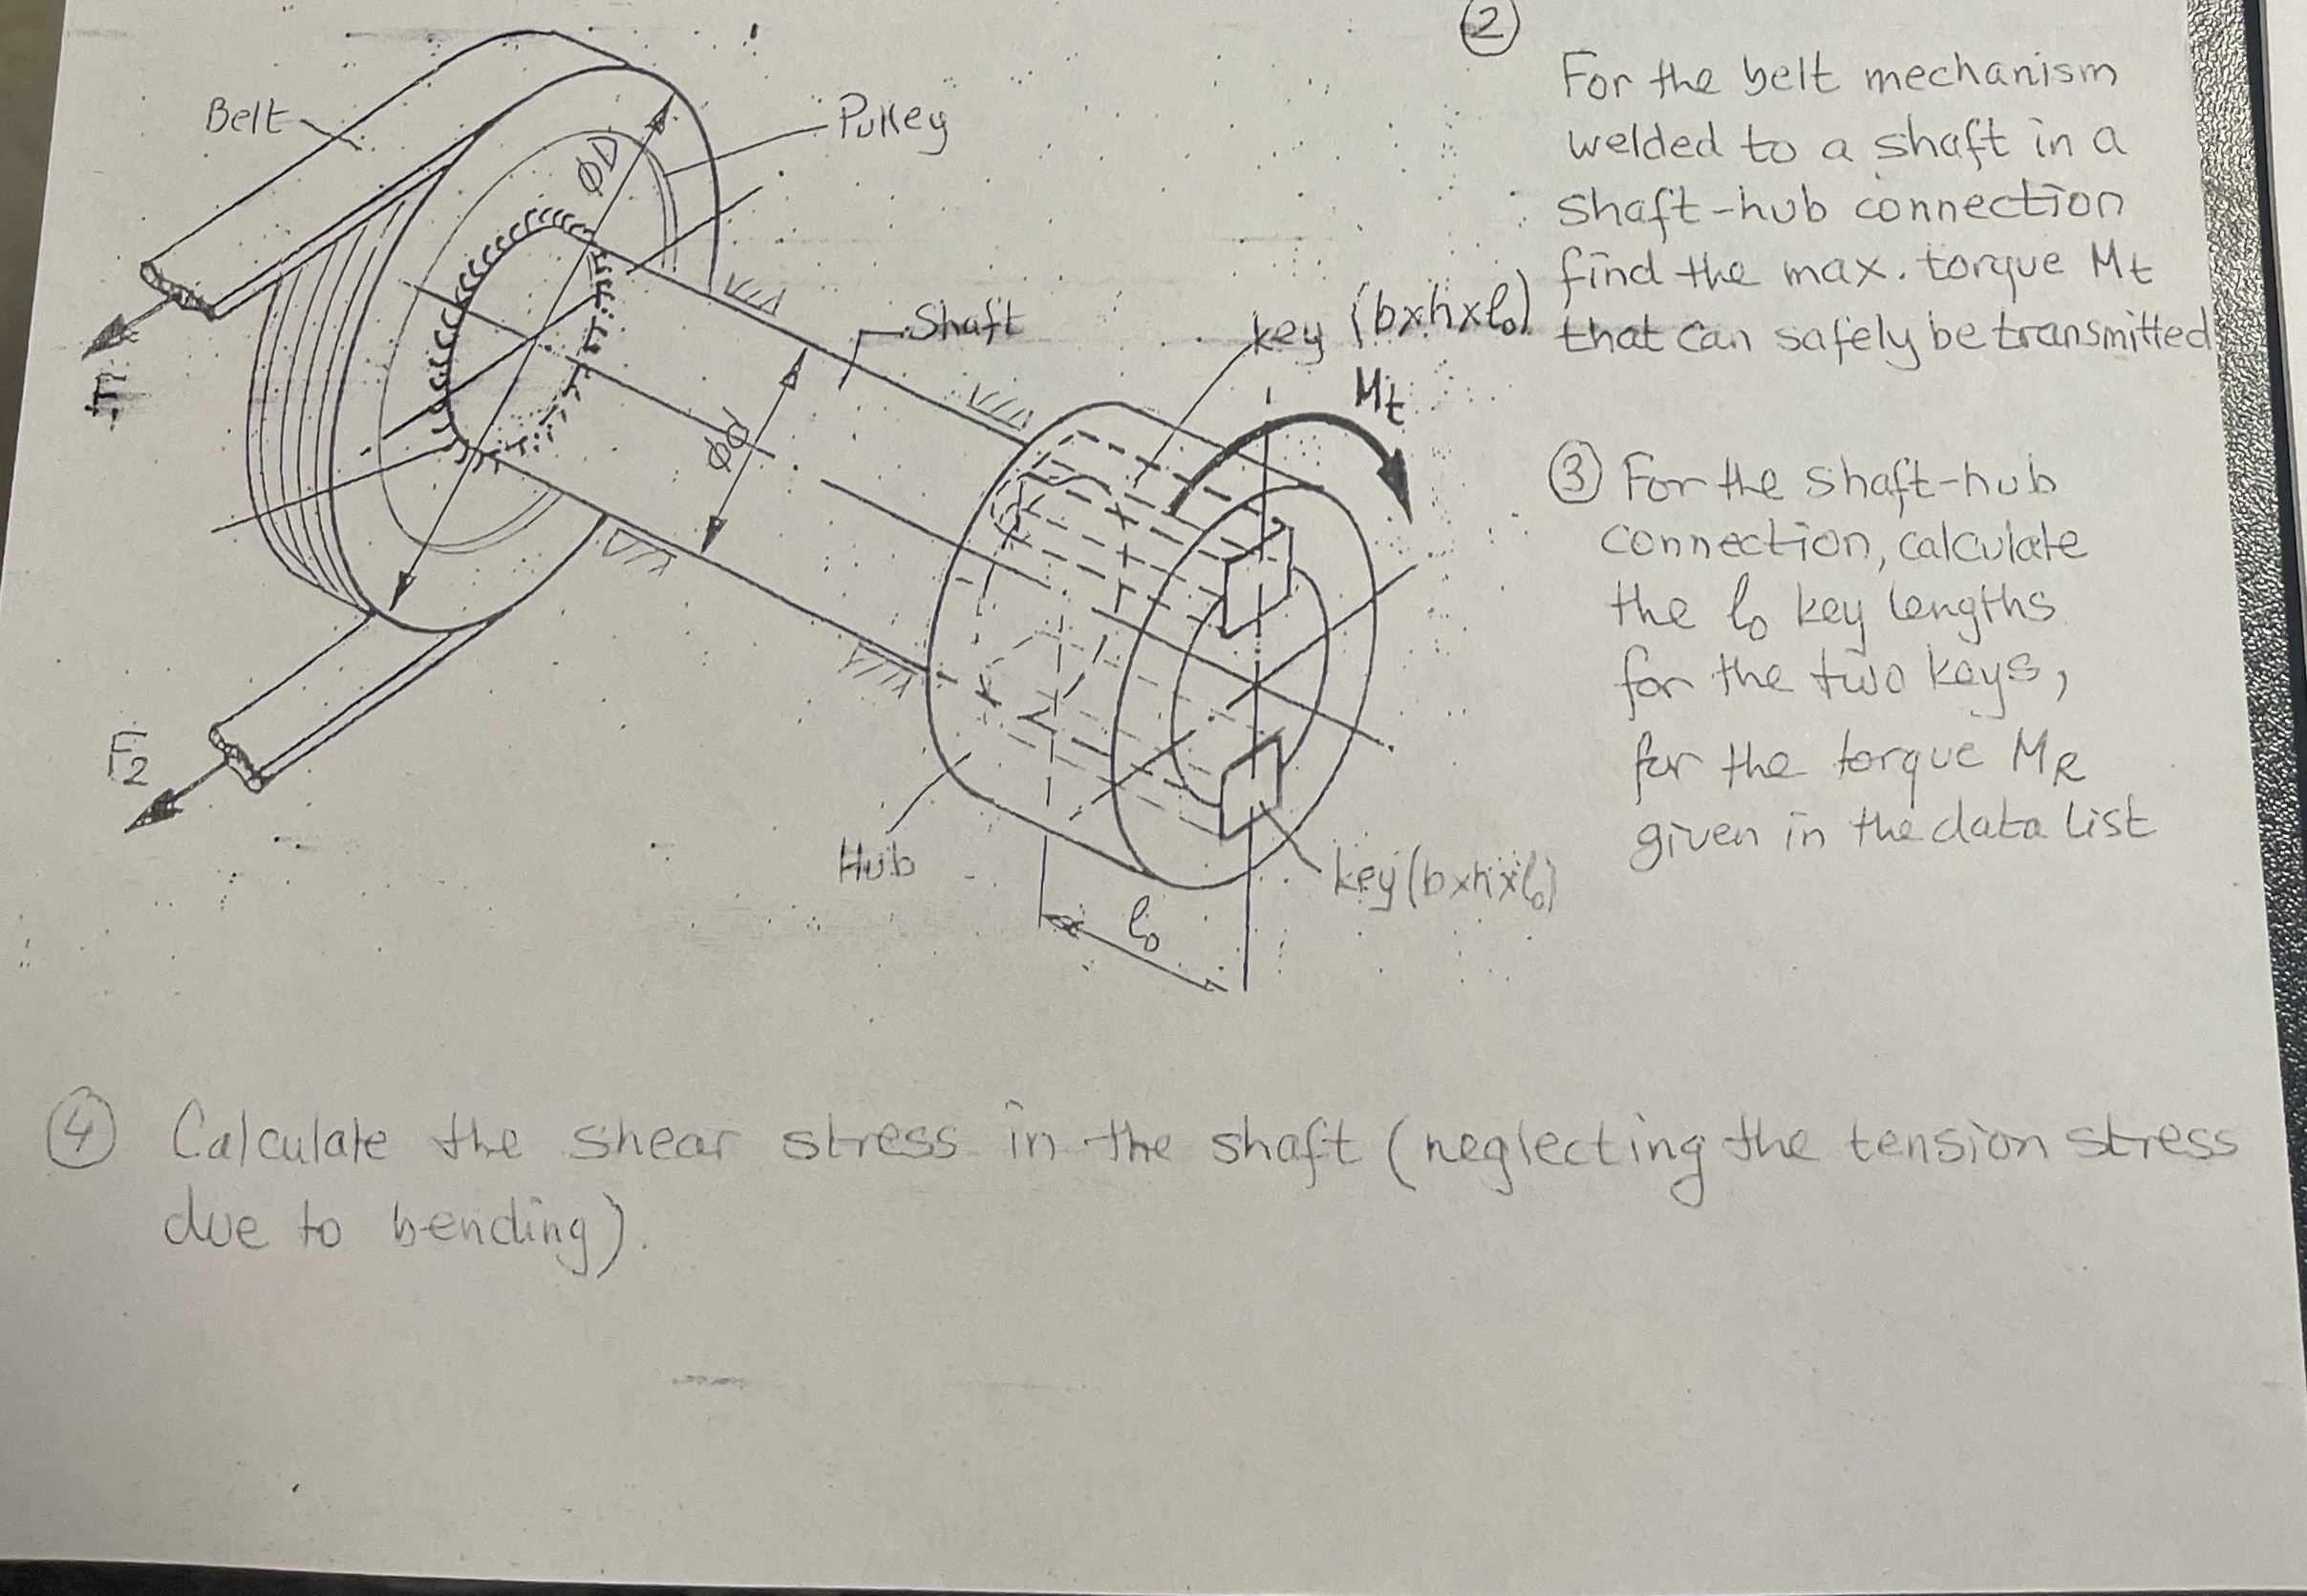 ②
For the belt mechanism
welded to a shaft in a
shaft-hub connection
find the max. torque Mt
that can safely be transmitted
Belt
Pulley
ØD
Shaft
key (b×h×l₀)
Mt
Ød
F₂
Hub
key (b×h×l₀)
l₀
③ For the shaft-hub
connection, calculate
the l₀ key lengths
for the two keys,
for the torque MR
given in the data list
④ Calculate the shear stress in the shaft (neglecting the tension stress
due to bending).